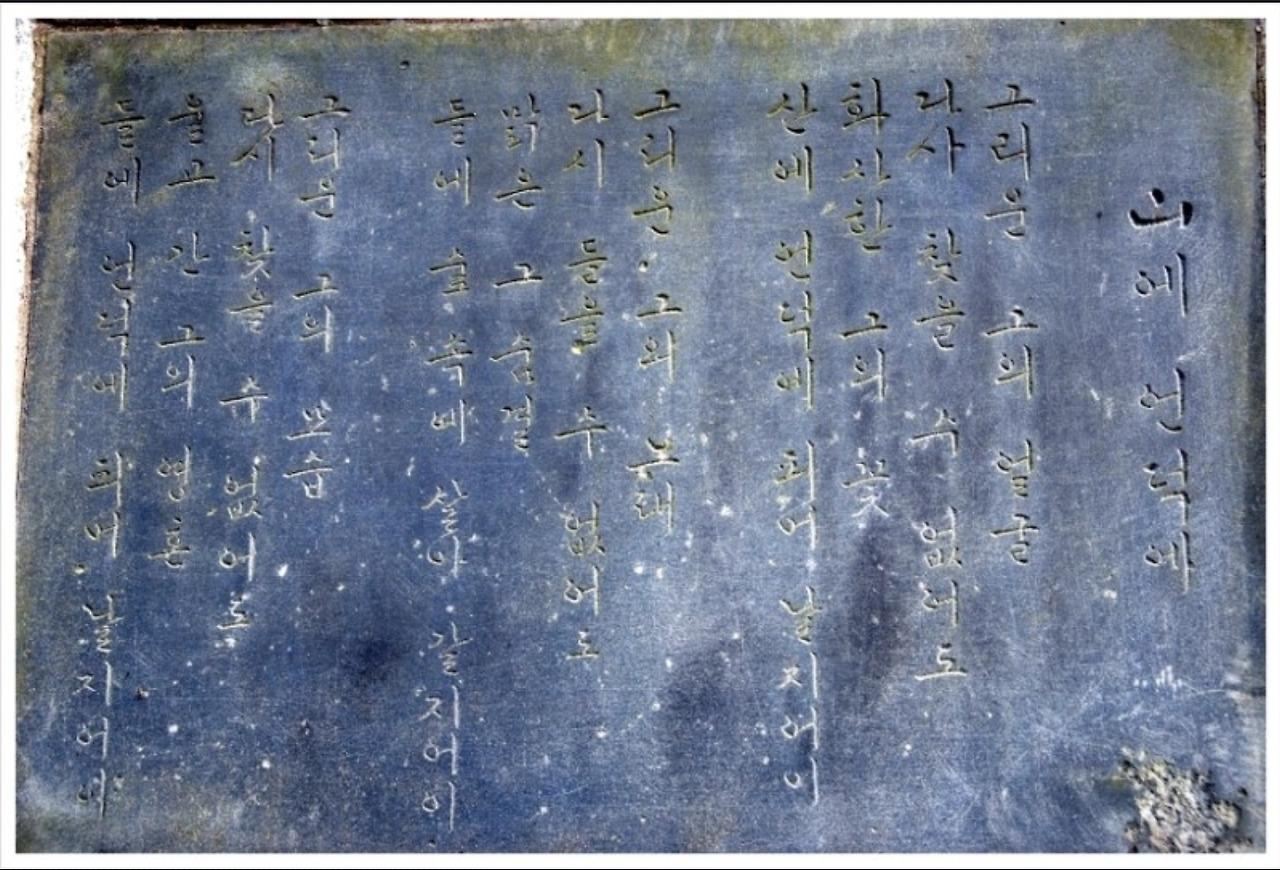 산에 언덕에
그리운 그의 얼굴
다시 찾을 수 없어도
화사한 그의 꽃
산에 언덕에 피어 날지어이
그리운 그의 노래
다시 들을 수 없어도
맑은 그 숨결
들에 숲 속에 살아 갈지어이
그리운 그의 모습
다시 찾을 수 없어도
울고 간 그의 영혼
들에 언덕에 피어 날지어이